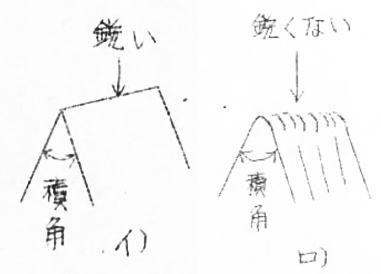 鋭い
積角
イ)
鋭くない
積角
ロ)